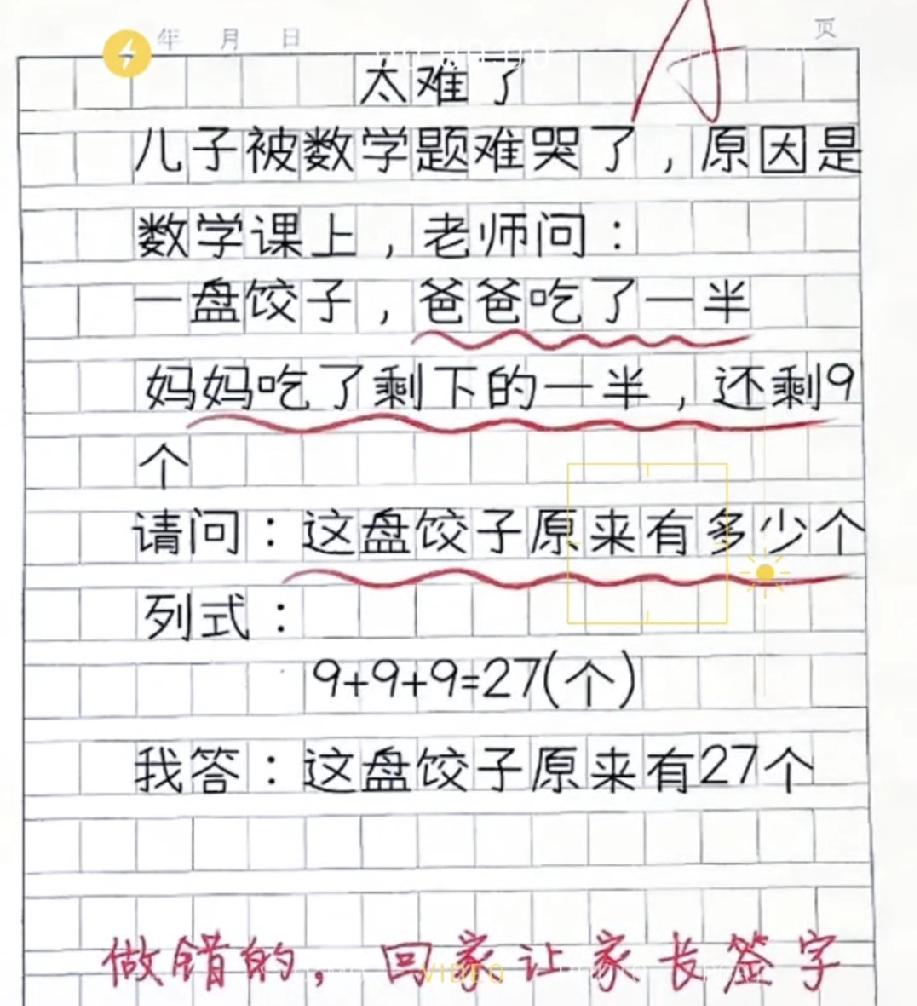 年 月 日 页
太难了
儿子被数学题难哭了，原因是
数学课上，老师问：
一盘饺子，爸爸吃了一半
妈妈吃了剩下的一半，还剩9
个
请问：这盘饺子原来有多少个
列式：
9+9+9=27(个)
我答：这盘饺子原来有27个
做错的，回家让家长签字
VIDEO